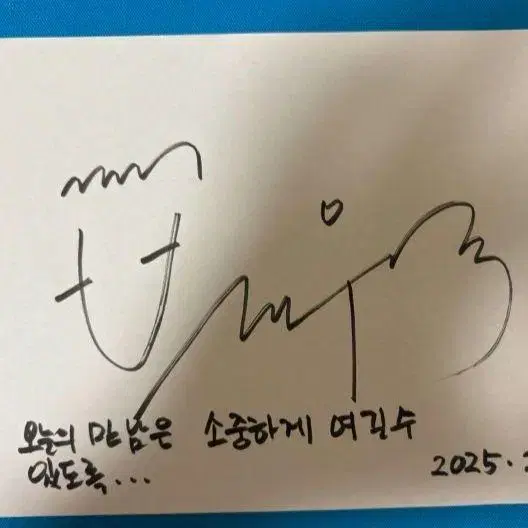 오늘의 만남은 소중하게 여길수
있도록...
2025.